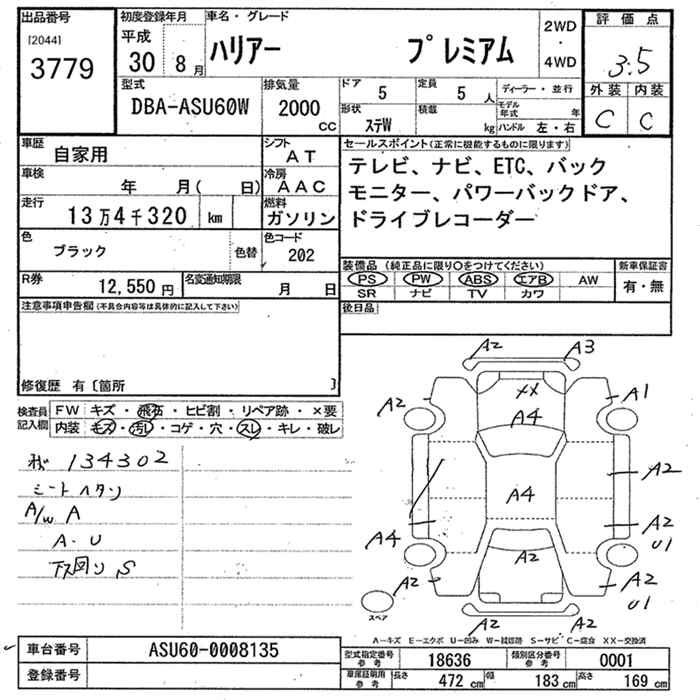 出品番号
[2044]
3779
初度登録年月
平成
30 8月
車名・グレード
ハリアー プレミアム
2WD
・
4WD
評価点
3.5
外装 内装
C C
型式
DBA-ASU60W
排気量
2000
CC
ドア 5
形状 ステW
定員 5 人
積載 kg
ディーラー・並行
モデル年式 年
ハンドル 左・右
車歴
自家用
シフト
AT
車検
年 月( 日)
冷房
AAC
走行
13万4千320 km
燃料
ガソリン
色
ブラック
色替
色コード
202
R券
12,550円
名変通知期限
月 日
セールスポイント(正常に機能するものに限ります)
テレビ、ナビ、ETC、バック
モニター、パワーバックドア、
ドライブレコーダー
装備品(純正品に限り○をつけてください)
PS PW ABS エアB AW
SR ナビ TV カワ
新車保証書
有・無
後日品
注意事項申告欄(不具合内容等は具体的に記入して下さい)
修復歴 有〔箇所 〕
検査員
記入欄
FW キズ・飛石・ヒビ割・リペア跡・×要
内装 キズ・汚レ・コゲ・穴・スレ・キレ・破レ
134302
シートヘタリ
A/W A
A・U
下回り S
A2 A3
A2 A1
XX
A4
A4
A2
A4
A2
U1
A2
A2
A2
U1
スペア
A2 A2
A-キズ E-エクボ U-凹み W-補修跡 S-サビ C-腐食 XX-交換済
車台番号 ASU60-0008135
登録番号
型式指定番号
参考
18636
類別区分番号
参考
0001
車庫証明用
参考
長さ 472 cm 幅 183 cm 高さ 169 cm